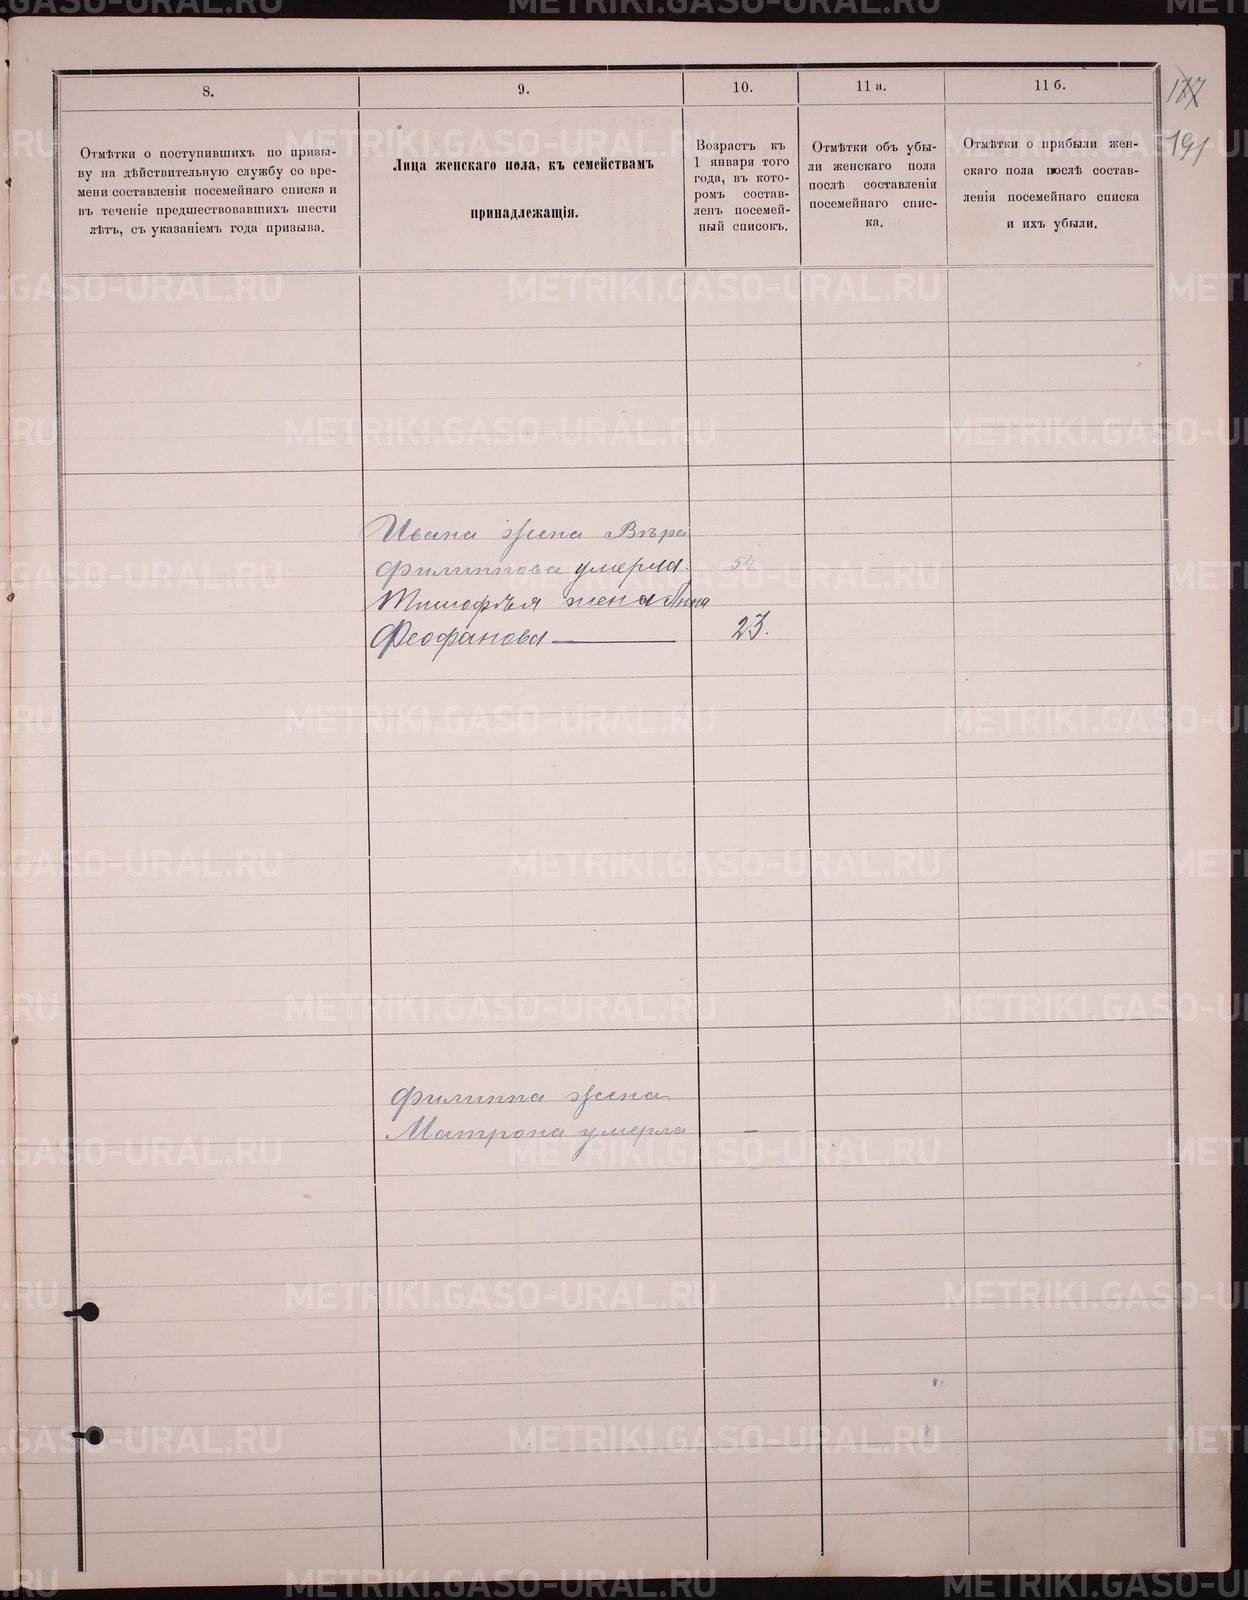 8.
9.
10.
11 а.
11 б.
177
191
Отмѣтки о поступившихъ по призы-
ву на дѣйствительную службу со вре-
мени составленія посемейнаго списка и
въ теченіе предшествовавшихъ шести
лѣтъ, съ указаніемъ года призыва.
Лица женскаго пола, къ семействамъ
принадлежащія.
Возрастъ къ
1 января того
года, въ кото-
ромъ состав-
ленъ посемей-
ный списокъ.
Отмѣтки объ убы-
ли женскаго пола
послѣ составленія
посемейнаго спис-
ка.
Отмѣтки о прибыли жен-
скаго пола послѣ состав-
ленія посемейнаго списка
и ихъ убыли.
Ивана жена Вѣра
Филиппова умерла. 54
Тимофѣя жена Анна
Феофанова — 23.
Филиппа жена
Матрона умерла —
METRIKI.GASO-URAL.RU